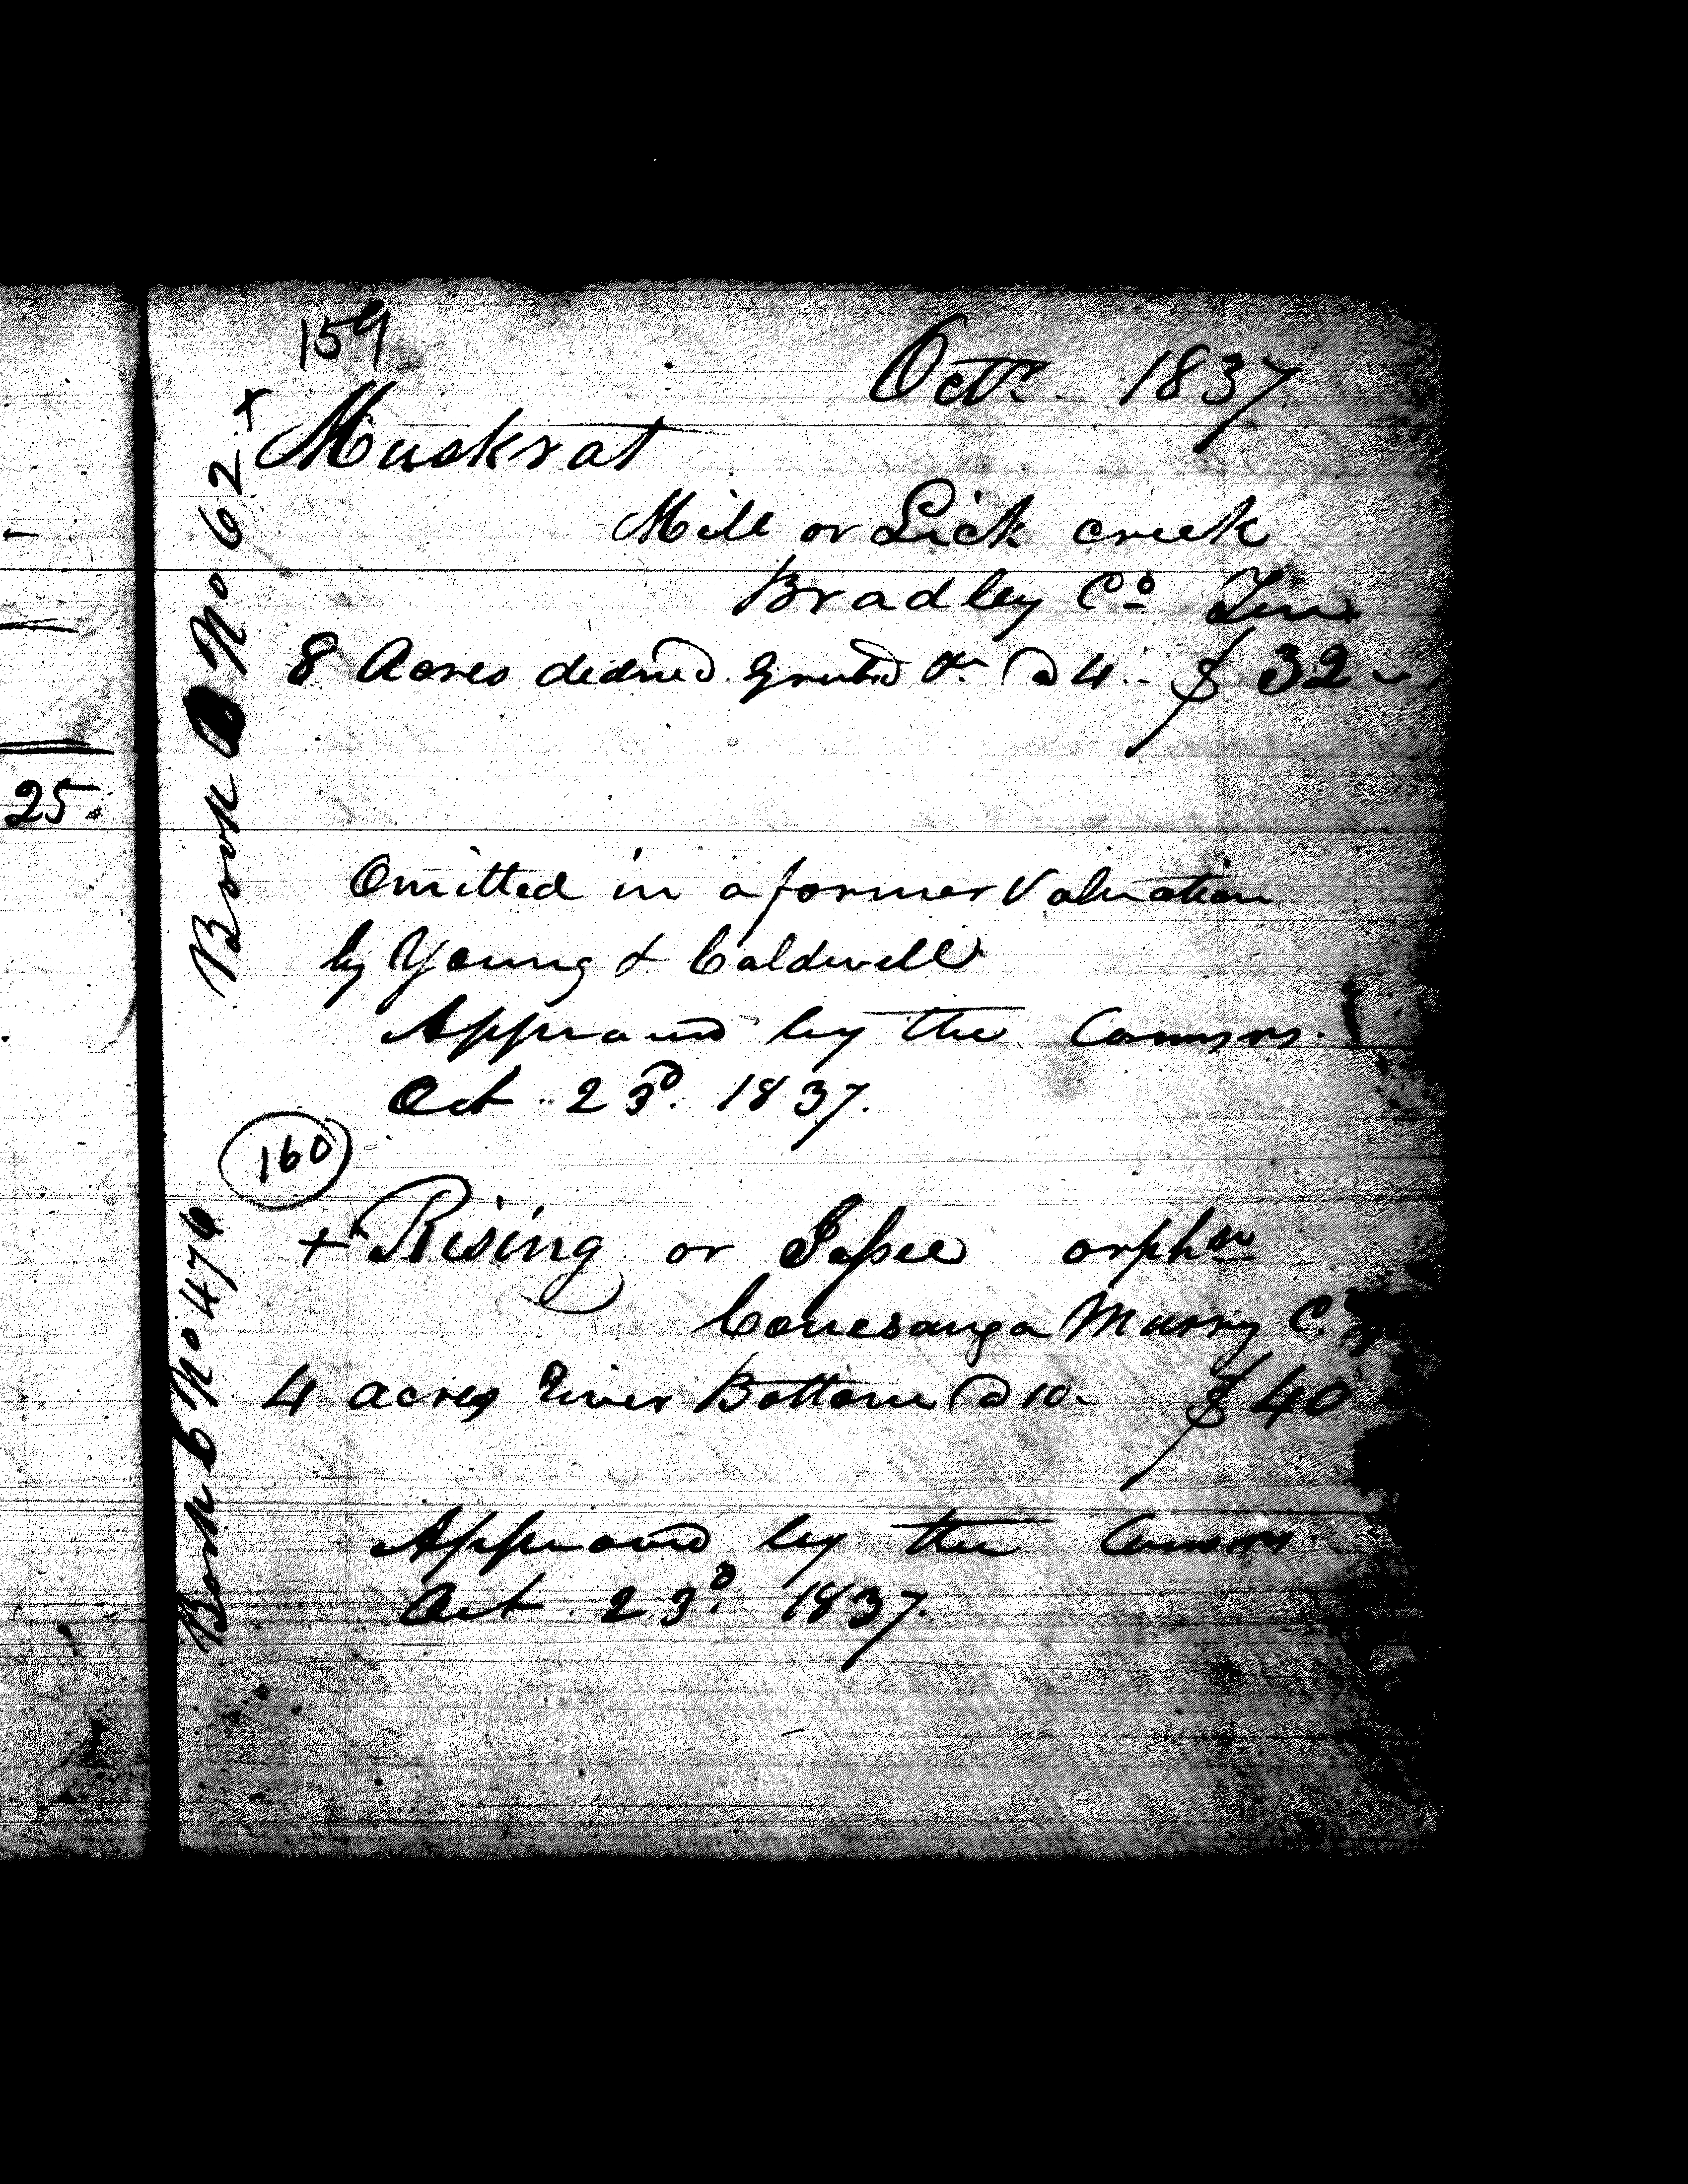 25.
159
Octr. 1837.
x Muskrat
Mill or Lick creek
Bradley Co Ten
8 Acres deadnd. Grubd &c @ 4 .. $ 32
Omitted in a former Valuation
by Young & Caldwell
Approved by the Commrs.
Oct .. 23d. 1837.
Book B No 62
160
+ Rising or Jessee orphn
Conesauga Murry Co
4 acres River Bottom @ 10. $ 40
Approved by the Commrs.
Oct. 23d. 1837.
Book No 476